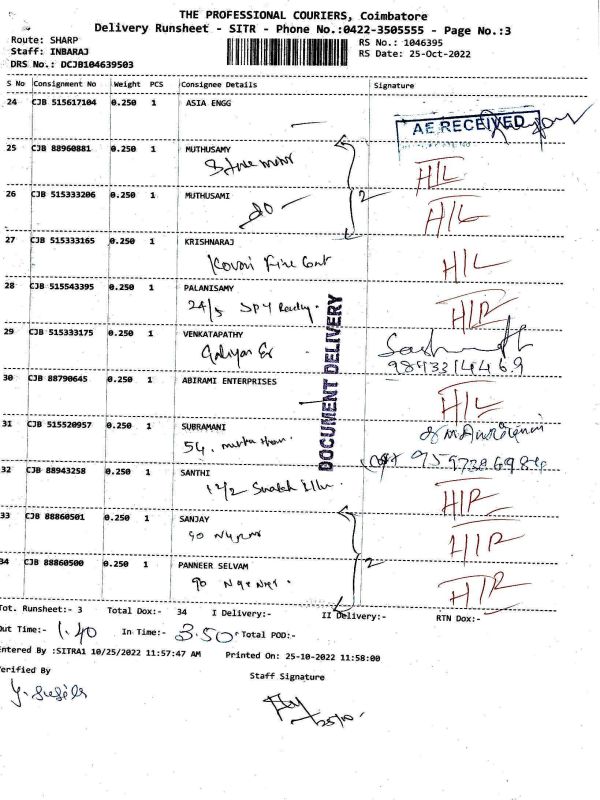 THE PROFESSIONAL COURIERS, Coimbatore
Delivery Runsheet - SITR - Phone No.:0422-3505555 - Page No.:3
Route: SHARP
Staff: INBARAJ
DRS No.: DCJB104639503
RS No.: 1046395
RS Date: 25-Oct-2022
S No Consignment No Weight PCS Consignee Details Signature
24 CJB 515617104 0.250 1 ASIA ENGG
AE RECEIVED
25 CJB 88960881 0.250 1 MUTHUSAMY
H/L
26 CJB 515333206 0.250 1 MUTHUSAMI
2
do H/L
27 CJB 515333165 0.250 1 KRISHNARAJ
Kovai Fine H/L
28 CJB 515543395 0.250 1 PALANISAMY
24/5 H/R
29 CJB 515333175 0.250 1 VENKATAPATHY
30 CJB 88790645 0.250 1 ABIRAMI ENTERPRISES
H/L
31 CJB 515520957 0.250 1 SUBRAMANI
54,
DOCUMENT DELIVERY
32 CJB 88943258 0.250 1 SANTHI
H/R
33 CJB 88860501 0.250 1 SANJAY
90 H/R
34 CJB 88860500 0.250 1 PANNEER SELVAM
2
90 H/R
Tot. Runsheet:- 3 Total Dox:- 34 I Delivery:- II Delivery:- RTN Dox:-
Out Time:- 1.40 In Time:- 3.50 Total POD:-
Entered By :SITRA1 10/25/2022 11:57:47 AM Printed On: 25-10-2022 11:58:00
Verified By
Staff Signature
25/10